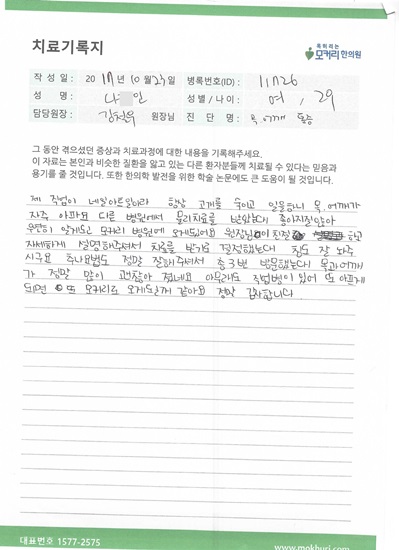 치료기록지
목허리는
모커리한의원
작 성 일 : 2017년 10월 23일 병록번호(ID) : 11726
성 명 : 나 인 성별 / 나이 : 여, 29
담당원장 : 원장님 진 단 명 : 목, 어깨 통증
그 동안 겪으셨던 증상과 치료과정에 대한 내용을 기록해주세요.
이 자료는 본인과 비슷한 질환을 앓고 있는 다른 환자분들께 치료될 수 있다는 믿음과
용기를 줄 것입니다. 또한 한의학 발전을 위한 학술 논문에도 큰 도움이 될 것입니다.
제 직업이 네일아트일이라 항상 고개를 숙이고 일을하니 목, 어깨가
자주 아파요 다른 병원에서 물리치료를 받았는데 좋아지질않아
우연히 알게되고 모커리 병원에 오게되어요 원장님이 친절 하고
자세하게 설명해주셔서 치료를 받기로 결정했는데 침도 잘 놔주
시구요 추나요법도 정말 잘해주셔서 총 3번 방문했는데 목과 어깨
가 정말 많이 괜찮아 졌네요 아무래도 직업병이 있어 또 아프게
되면 또 모커리로 오게될꺼 같아요 정말 감사합니다.
대표번호 1577-2575 www.mokhuri.com